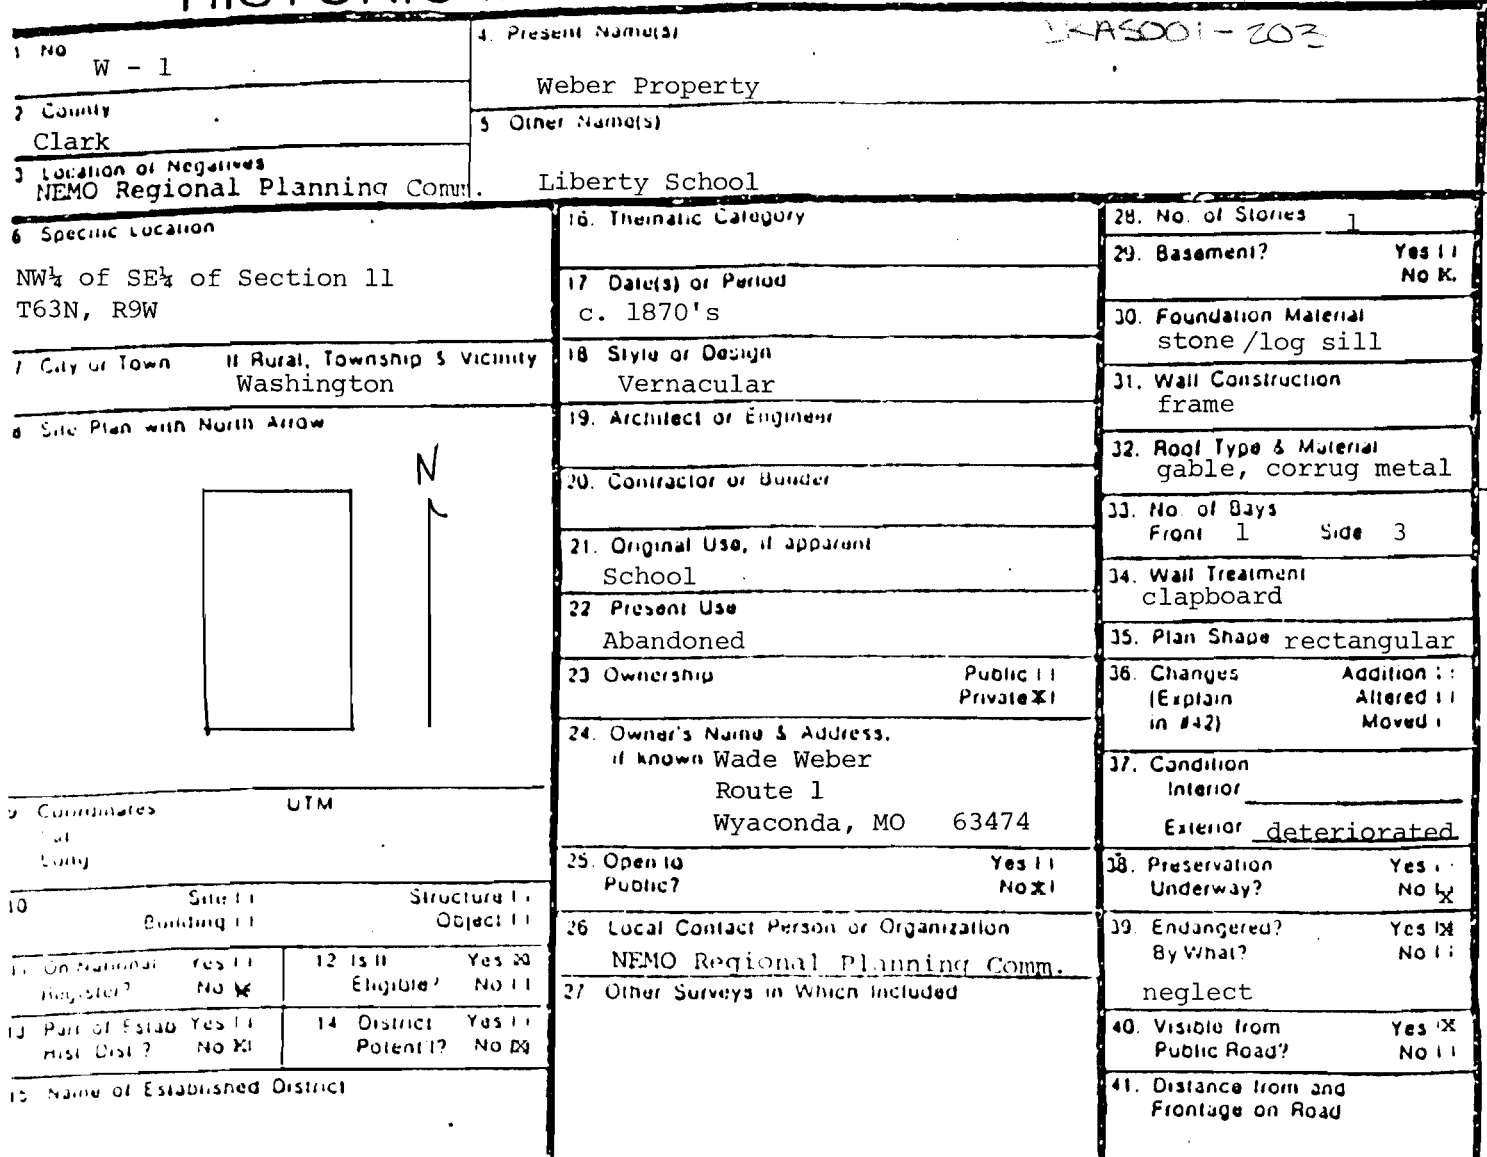 1 No
W - 1
2 County
Clark
3 Location of Negatives
NEMO Regional Planning Comm.
4. Present Name(s)
Weber Property
5 Other Name(s)
Liberty School
6 Specific Location
NW¼ of SE¼ of Section 11
T63N, R9W
7 City or Town If Rural, Township & Vicinity
Washington
8 Site Plan with North Arrow
N
9 Coordinates UTM
Lat
Long
10 Site Structure
Building Object
11 On National Register? Yes No X
12 Is It Eligible? Yes X No
13 Part of Estab Hist. Dist.? Yes No X
14 District Potent'l? Yes No X
15 Name of Established District
16. Thematic Category
17 Date(s) or Period
c. 1870's
18 Style or Design
Vernacular
19. Architect or Engineer
20. Contractor or Builder
21. Original Use, if apparent
School
22 Present Use
Abandoned
23 Ownership Public
Private X
24. Owner's Name & Address,
if known Wade Weber
Route 1
Wyaconda, MO 63474
25. Open to Yes
Public? No X
26 Local Contact Person or Organization
NEMO Regional Planning Comm.
27 Other Surveys in Which Included
28. No. of Stories 1
29. Basement? Yes
No X
30. Foundation Material
stone/log sill
31. Wall Construction
frame
32. Roof Type & Material
gable, corrug metal
33. No. of Bays
Front 1 Side 3
34. Wall Treatment
clapboard
35. Plan Shape rectangular
36. Changes Addition
(Explain Altered
in #42) Moved
37. Condition
Interior
Exterior deteriorated
38. Preservation Yes
Underway? No X
39. Endangered? Yes X
By What? No
neglect
40. Visible from Yes X
Public Road? No
41. Distance from and
Frontage on Road